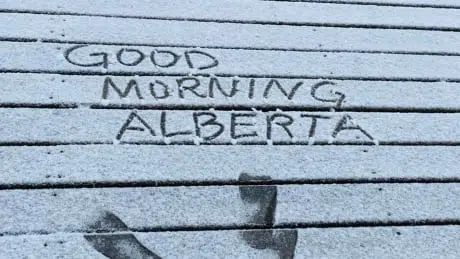 GOOD
MORNING
ALBERTA